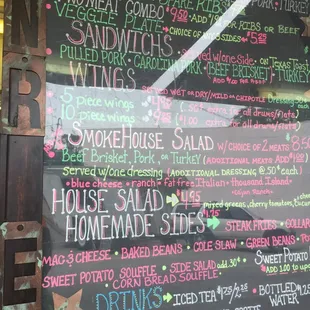 MEAT COMBO
VEGGIE PLATE → CHOICE OF SIDES → $5.25
RIBS OR BEEF
SANDWICHS
SERVED W/ONE SIDE- ON TEXAS
PULLED PORK - CAROLINA PORK - BEEF BRISKET - TURKEY
WINGS
SERVED WET OR DRY/MILD OR CHIPOTLE DRESSING
5 PIECE WINGS FOR ALL DRUMS/FLATS
10 PIECE WINGS 1.00 EXTRA FOR ALL DRUMS/FLATS
SMOKEHOUSE SALAD W/CHOICE OF 2 MEATS 8.50
BEEF BRISKET, PORK, OR TURKEY (ADDITIONAL MEATS ADD
SERVED W/ONE DRESSING (ADDITIONAL DRESSING @.50¢ EACH)
• BLUE CHEESE • RANCH • FAT FREE ITALIAN • THOUSAND ISLAND •
HOUSE SALAD → 4.95 MIXED GREENS, CHERRY TOMATOES,
HOMEMADE SIDES → $1.75
STEAK FRIES • COLLAR
MAC-3 CHEESE • BAKED BEANS • COLE SLAW • GREEN BEANS
SWEET POTATO SOUFFLE • SIDE SALAD ADD .30¢
CORN BREAD SOUFFLE •
SWEET POTATO
ADD 1.00 TO
DRINKS → ICED TEA
BOTTLED
WATER